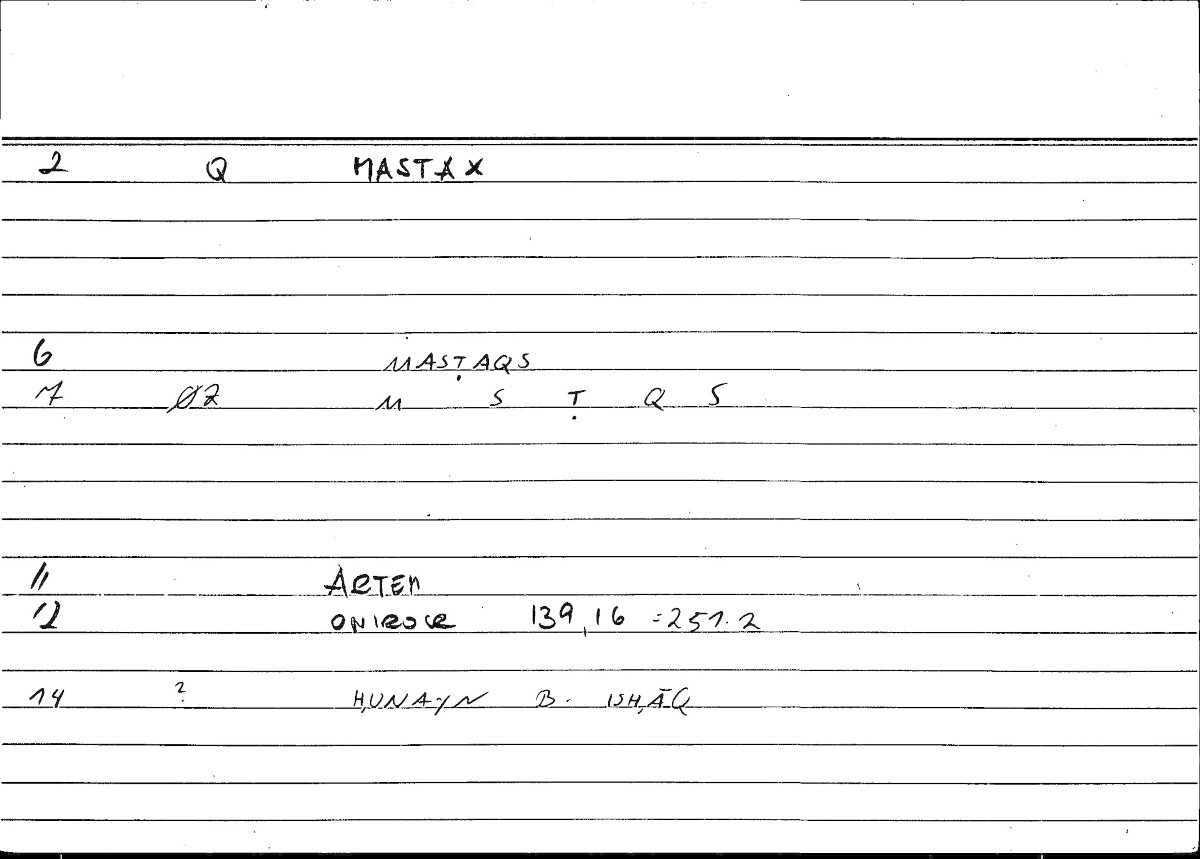 2 Q MASTAX
6 MASṬAQS
7 ØZ M S Ṭ Q S
11 ARTEM
12 ONIROCR 139,16 =251.2
14 ? ḤUNAYN B. ISḤĀQ